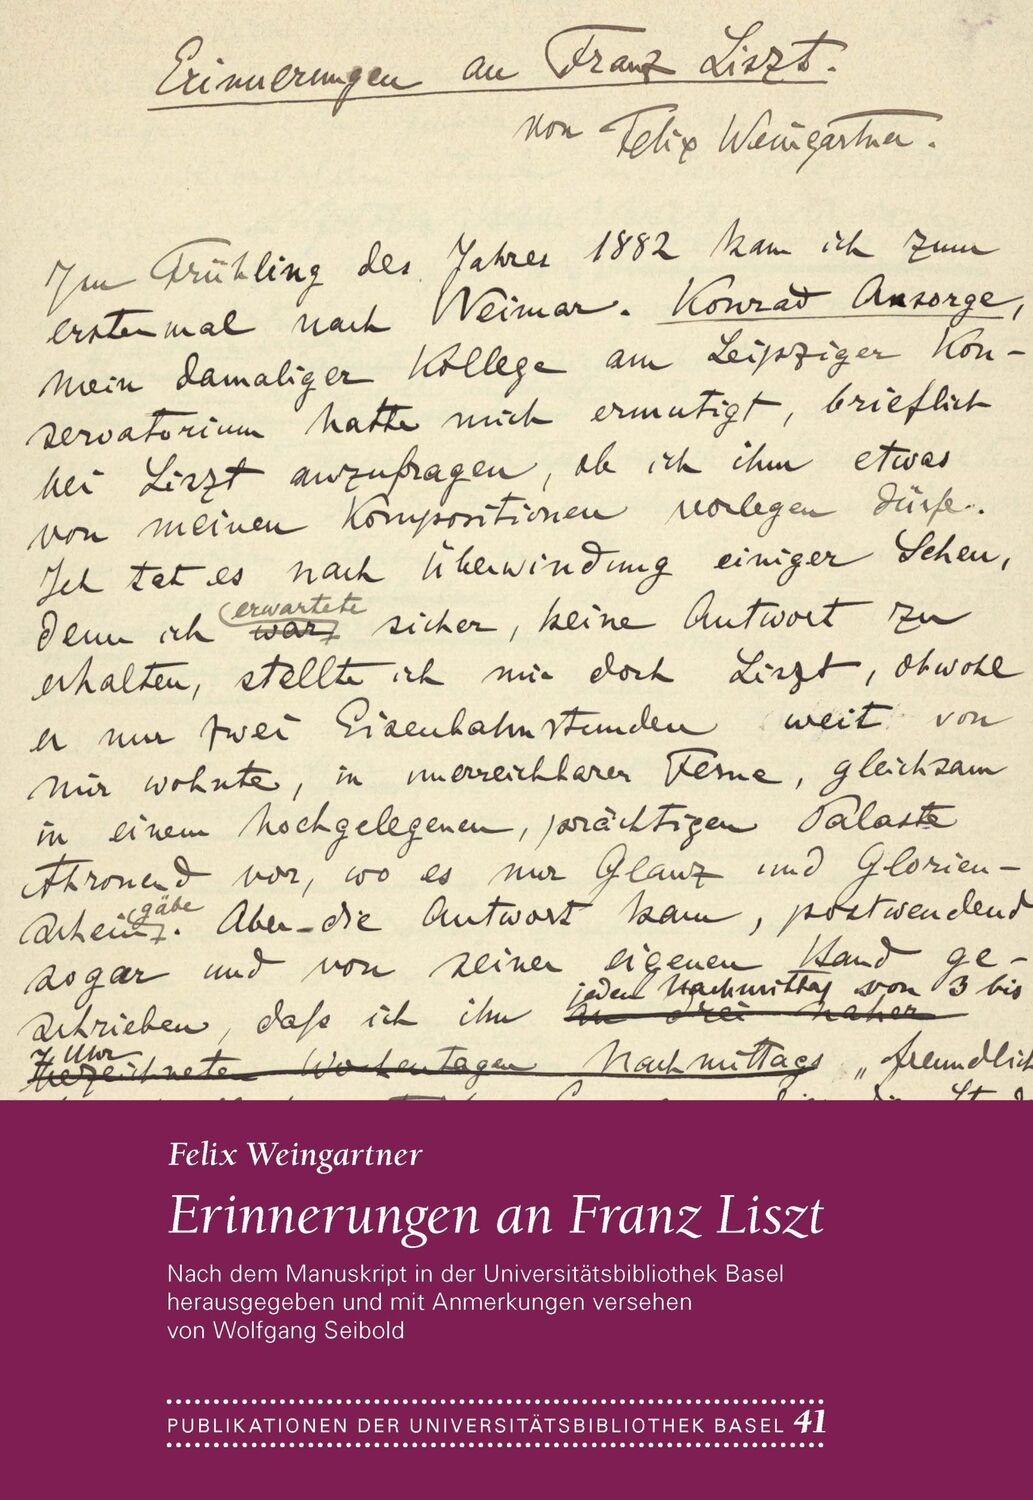 Erinnerungen an Franz Liszt.
von Felix Weingartner.
Im Frühling des Jahres 1882 kam ich zum
erstenmal nach Weimar. Konrad Ansorge,
mein damaliger Kollege am Leipziger Kon-
servatorium hatte mich ermutigt, brieflich
bei Liszt anzufragen, ob ich ihm etwas
von meinen Kompositionen vorlegen dürfe.
Ich tat es nach Überwindung einiger Scheu,
erwartete
denn ich war sicher, keine Antwort zu
erhalten, stellte ich mir doch Liszt, obwohl
er nur zwei Eisenbahnstunden weit von
mir wohnte, in unerreichbarer Ferne, gleichsam
in einem hochgelegenen, prächtigen Palaste
thronend vor, wo es nur Glanz und Glorien-
gäbe
schein. Aber die Antwort kam, postwendend
sogar und von seiner eigenen Hand ge-
jeden Nachmittag von 3 bis
schrieben, daß ich ihm an drei näher
7 Uhr
bezeichneten Wochentagen Nachmittags „freundlich
Felix Weingartner
Erinnerungen an Franz Liszt
Nach dem Manuskript in der Universitätsbibliothek Basel
herausgegeben und mit Anmerkungen versehen
von Wolfgang Seibold
PUBLIKATIONEN DER UNIVERSITÄTSBIBLIOTHEK BASEL 41